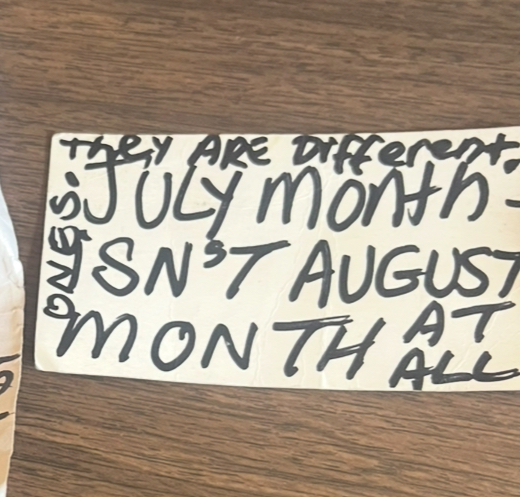 They ARE Different.
JULY Month -
ISN'T AUGUST
MONTH AT
ALL
ONES.